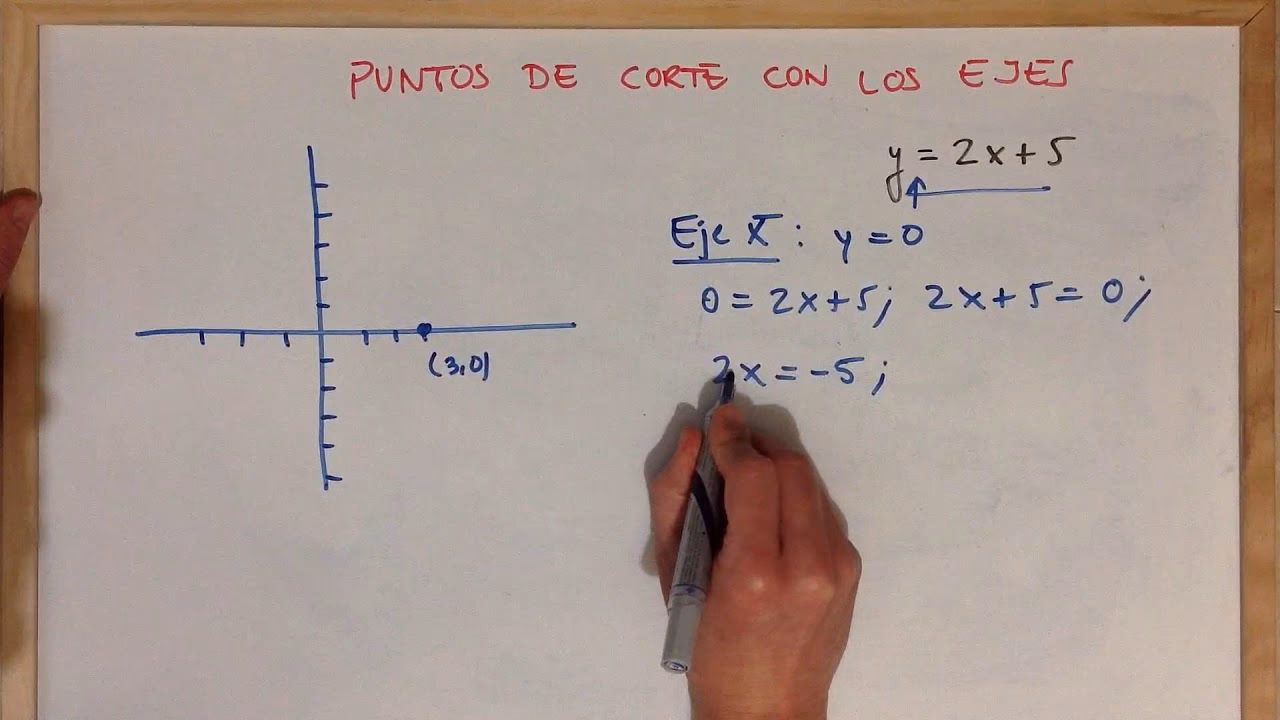 PUNTOS DE CORTE CON LOS EJES
y = 2x + 5
Eje X : y = 0
0 = 2x + 5; 2x + 5 = 0;
2x = -5;
(3,0)